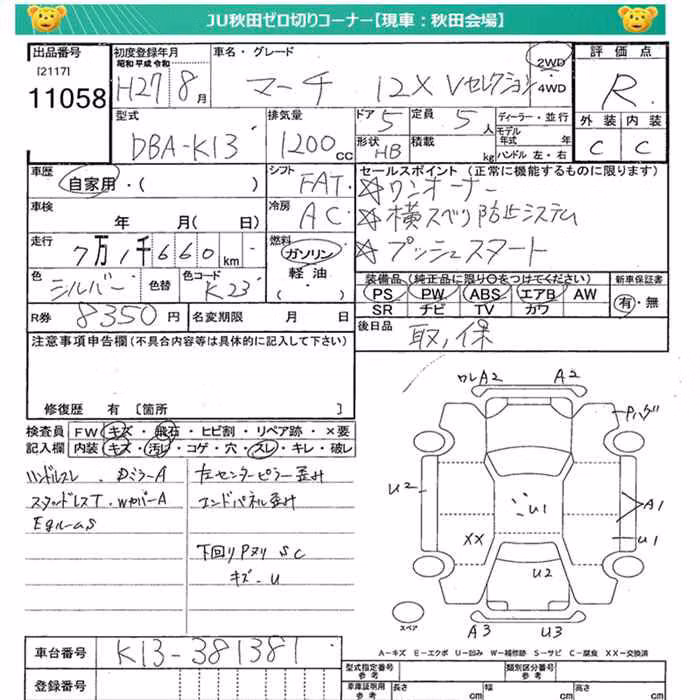 JU秋田ゼロ切りコーナー【現車：秋田会場】
出品番号
[2117]
11058
初度登録年月
昭和 平成 令和
H27 8月
車名・グレード
マーチ 12X Vセレクション
2WD
・
4WD
評価点
R
外装 内装
C C
型式
DBA-K13
排気量
1200cc
ドア
5
形状
HB
定員
5人
積載
kg
ディーラー・並行
モデル年式 年
ハンドル 左・右
車歴
自家用・( )
シフト
FAT
セールスポイント（正常に機能するものに限ります）
☆ワンオーナー
☆横スベリ防止システム
☆プッシュスタート
車検
年 月( 日)
冷房
AC
走行
7万1千660km
燃料
ガソリン
軽油
・( )
色
シルバー
色替
色コード
K23
装備品（純正品に限り○をつけてください）
PS PW ABS エアB AW
SR ナビ TV カワ
新車保証書
有・無
R券 8350円
名変期限 月 日
後日品
取，保
注意事項申告欄（不具合内容等は具体的に記入して下さい）
修復歴 有 〔箇所 〕
検査員
記入欄
FW キズ・飛石・ヒビ割・リペア跡・×要
内装 キズ・汚レ・コゲ・穴・スレ・キレ・破レ
ハンドルスレ．DミラーA
スタッドレスT．WカバーA
Egルームs
左センターピラー歪み
エンドパネル歪み
下回りPヌリ SC
キズ-U
ワレA2 A2
Pハゲ
U2
U1
A1
U1
XX
U2
A3 U3
スペア
A－キズ E－エクボ U－凹み W－補修跡 S－サビ C－腐食 XX－交換済
車台番号
K13-381381
登録番号
型式指定番号
参考
類別区分番号
参考
車庫証明用
参考
長さ cm
幅 cm
高さ cm